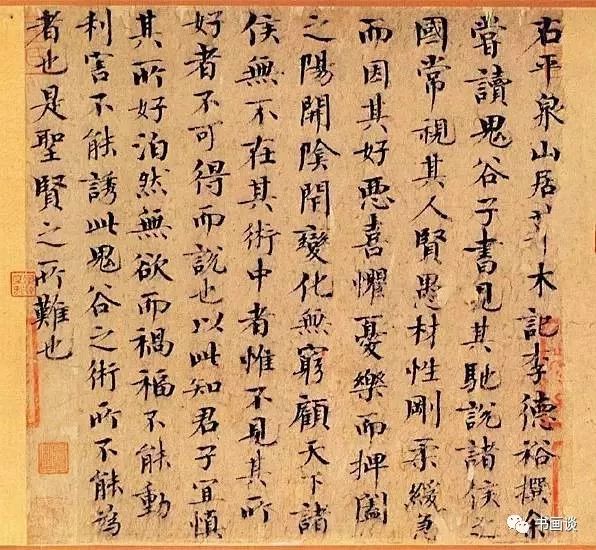 右平泉山居草木記李德裕撰余
嘗讀鬼谷子書見其馳說諸侯之
國常視其人賢愚材性剛柔緩急
而因其好惡喜懼憂樂而捭闔
之陽開陰閉變化無窮顧天下諸
侯無不在其術中者惟不見其所
好者不可得而說也以此知君子宜慎
其所好泊然無欲而禍福不能動
利害不能誘此鬼谷之術所不能為
者也是聖賢之所難也
书画谈